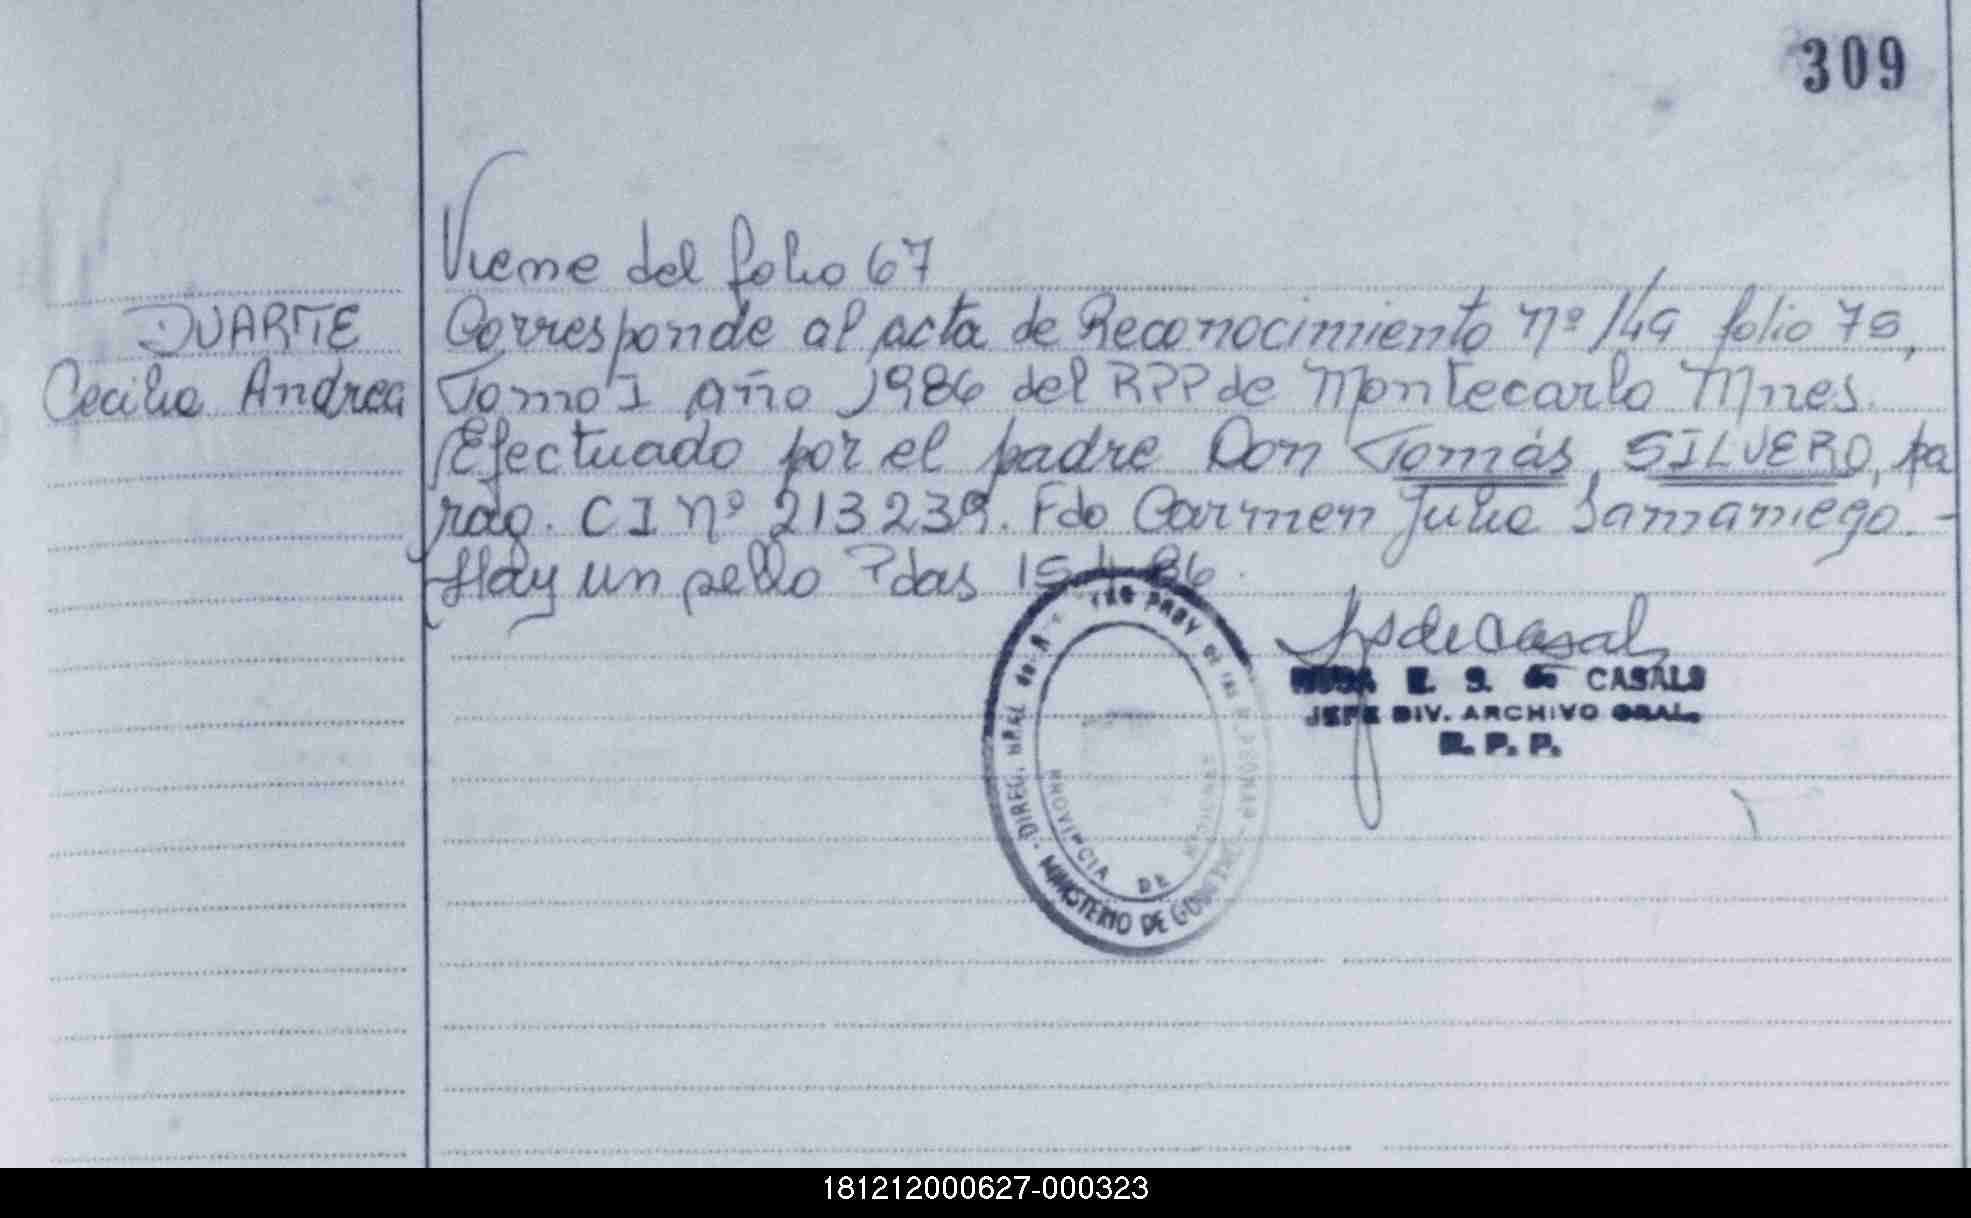 309
Viene del folio 67
DUARTE
Cecilia Andrea
Corresponde al acta de Reconocimiento nº 149 folio 75,
Tomo I año 1986 del RPP de Montecarlo Mnes.
Efectuado por el padre Don Tomás SILVERO, pa
rag. CI nº 213239. Fdo Carmen Julia Samaniego.-
Hay un sello Pdas 15.4.86.
E. S. de CASALS
JEFE DIV. ARCHIVO GRAL.
R. P. P.
PROV de las
DIREC. MINISTERIO DE
PROVINCIA DE MISIONES
181212000627-000323